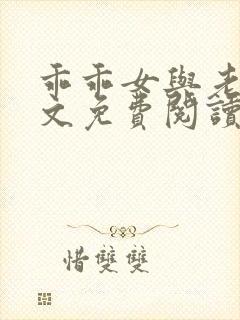 乖乖女與老
文免費閱讀
惜雙雙